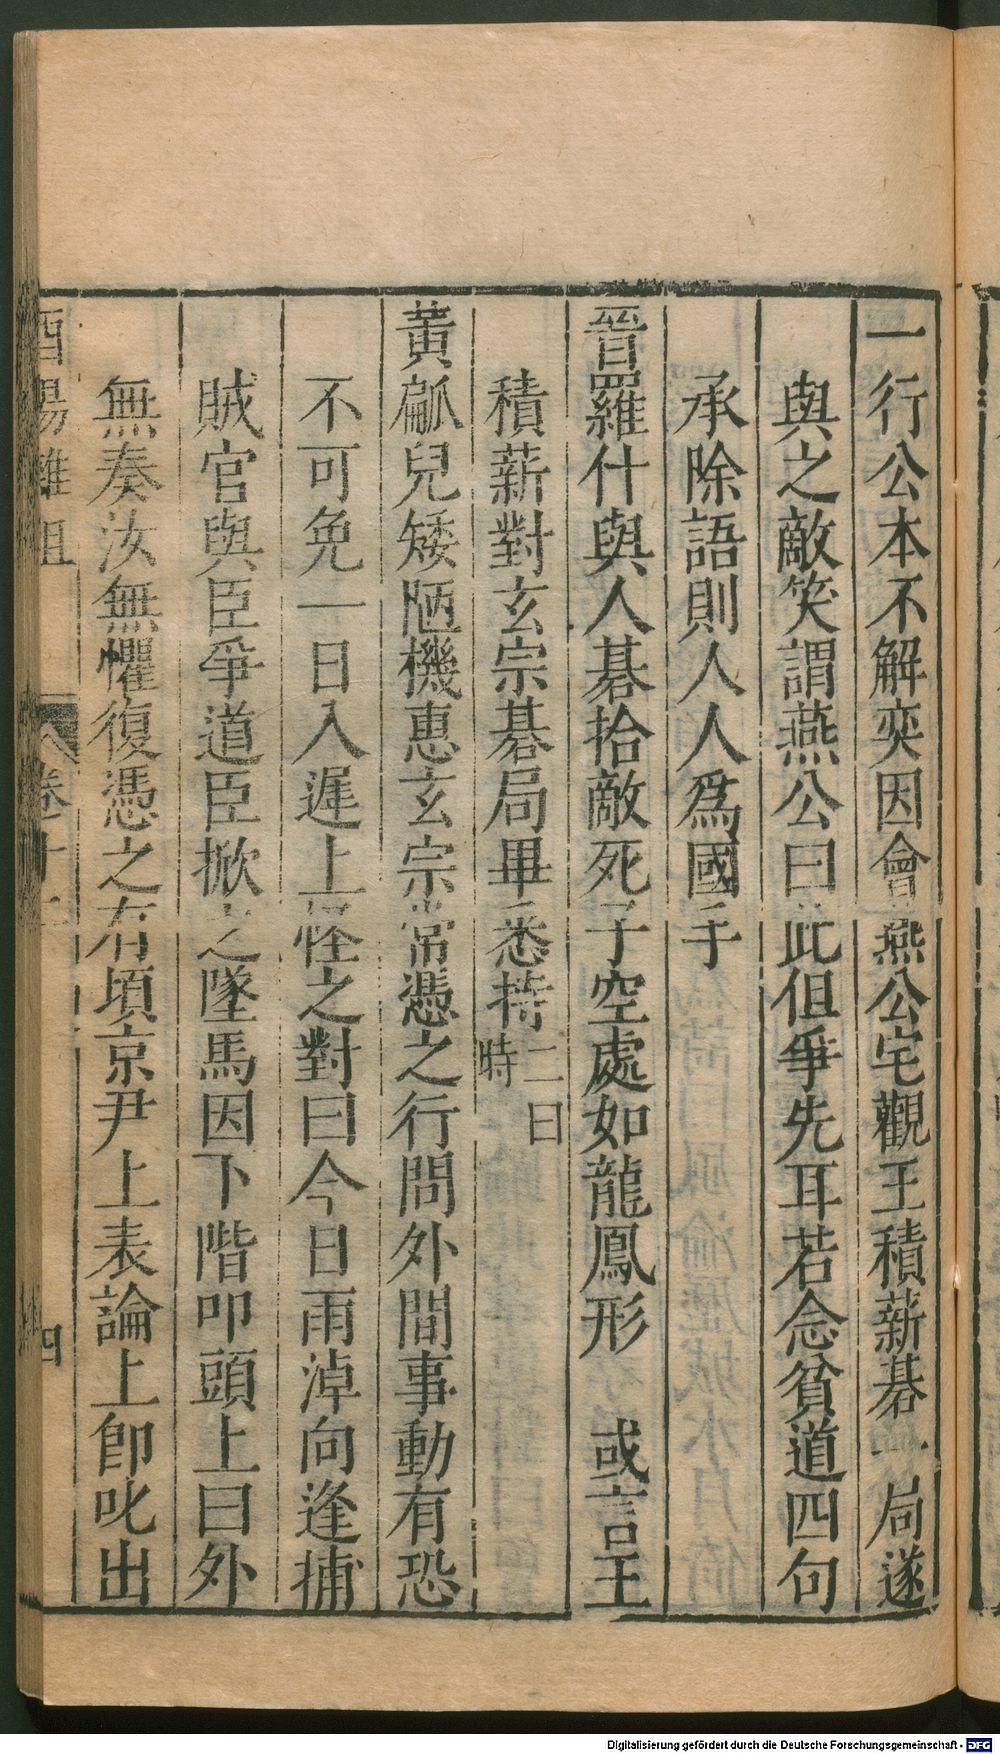 一行公本不解奕因會燕公宅觀王積薪碁一局遂
與之敵笑謂燕公曰此但爭先耳若念貧道四句
承除語則人人爲國手
晉羅什與人碁拾敵死子空處如龍鳳形 或言王
積薪對玄宗碁局畢悉持一曰時
黃𤬏兒矮陋機惠玄宗常憑之行問外間事動有恐
不可免一日入遲上怪之對曰今日雨淖向逢捕
賊官與臣爭道臣掀之墜馬因下階叩頭上曰外
無奏汝無懼復憑之有頃京尹上表論上卽叱出
酉陽雜俎 卷十二 四
Digitalisierung gefördert durch die Deutsche Forschungsgemeinschaft - DFG